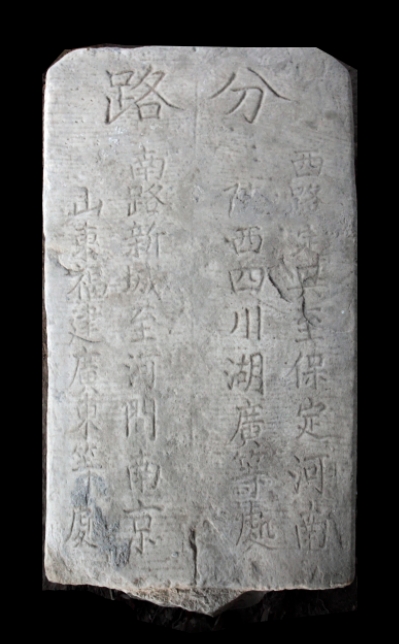 分路
西路定興至保定河南
陝西四川湖廣等處
南路新城至河間南京
山東福建廣東等處